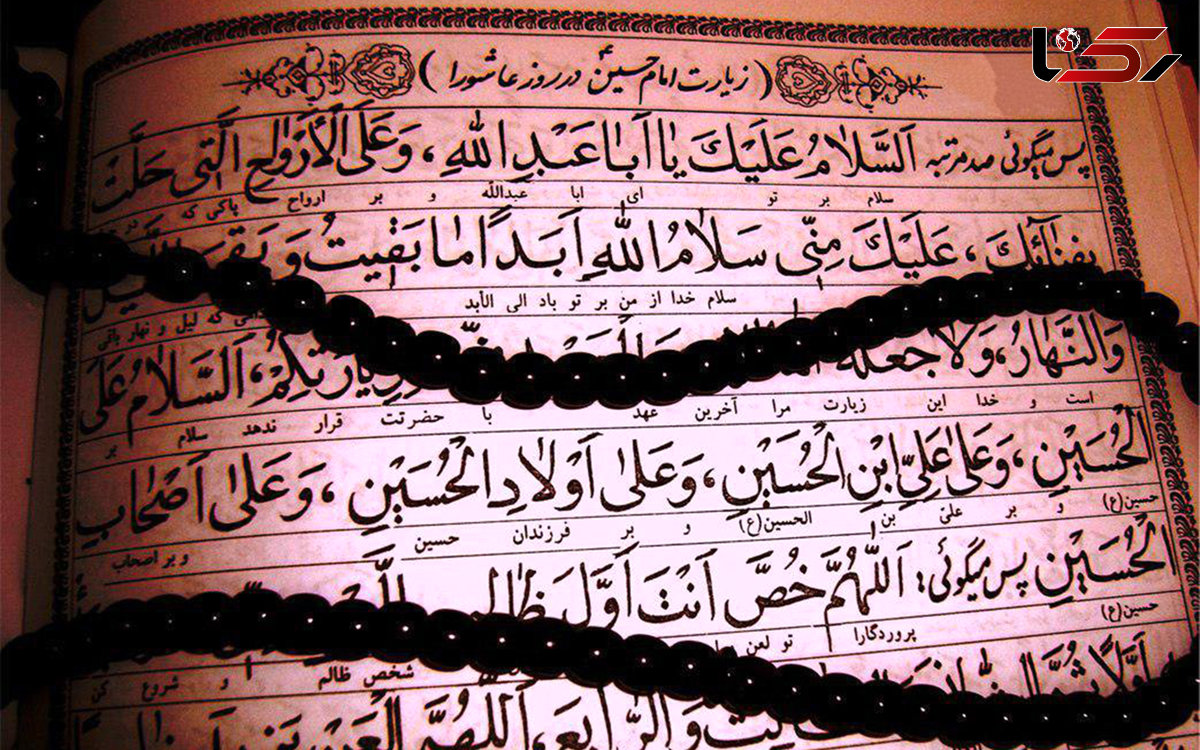 رکنا
( زیارت امام حسین ع در روز عاشورا )
پس میگوئی صد مرتبه اَلسَّلامُ عَلَیْکَ یا اَبا عَبْدِ اللهِ ، وَعَلَی الْاَرْواحِ الَّتی حَلَّتْ
سلام بر تو ای ابا عبدالله و بر ارواح پاکی که
بِفِنائِكَ ، عَلَیْکَ مِنّی سَلامُ اللهِ اَبَدًا ما بَقیتُ وَ بَقِیَ
سلام خدا از من بر تو باد الی الأبد که لیل و نهار باقی
وَالنَّهارُ، وَلا جَعَلَهُ لِزِیارَتِکُمْ، اَلسَّلامُ عَلَی
است و خدا این زیارت مرا آخرین عهد با حضرتت قرار ندهد سلام بر
الْحُسَیْنِ ، وَعَلی عَلِیِّ ابْنِ الْحُسَیْنِ ، وَعَلی اَوْلادِ الْحُسَیْنِ ، وَعَلی اَصْحابِ
حسین(ع) و بر علیّ بن الحسین(ع) و بر فرزندان حسین و بر اصحاب
الْحُسَیْنِ پس میگوئی: اَللّهُمَّ خُصَّ اَنْتَ اَوَّلَ ظالِمٍ
حسین(ع) پروردگارا تو لعن
اَوَّلاً
شخص ظالم و شروع کن
وَالرّابِعَ، اَللّهُمَّ الْعَنْ